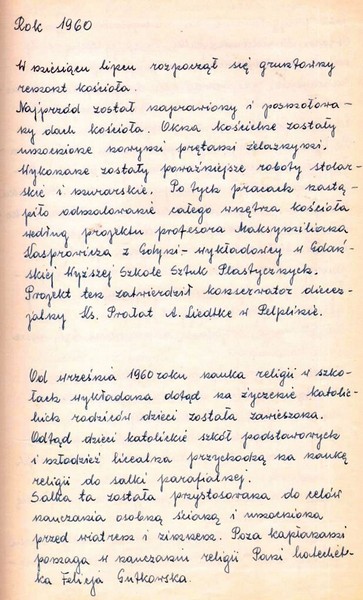 Rok 1960
W miesiącu lipcu rozpoczął się gruntowny
remont kościoła.
Najprzód został naprawiony i posmołowa-
ny dach kościoła. Okna kościelne zostały
umocnione nowymi prętami żelaznymi.
Wykonane zostały poważniejsze roboty stolar-
skie i murarskie. Po tych pracach nastą-
piło odmalowanie całego wnętrza kościoła
według projektu profesora Maksymiliana
Kasprowicza z Gdyni - wykładowcy w Gdań-
skiej Wyższej Szkole Sztuk Plastycznych.
Projekt ten zatwierdził konserwator diece-
zjalny Ks. Prałat A. Liedtke w Pelplinie.
Od września 1960 roku nauka religii w szko-
łach wykładana dotąd na życzenie katolic-
kich rodziców dzieci została zawieszona.
Odtąd dzieci katolickie szkół podstawowych
i młodzież licealna przychodzą na naukę
religii do salki parafialnej.
Salka ta została przystosowana do celów
nauczania osobną ścianą i umocniona
przed wiatrem i zimnem. Poza kapłanami
pomaga w nauczaniu religii Pani katechet-
ka Felicja Gutkowska.